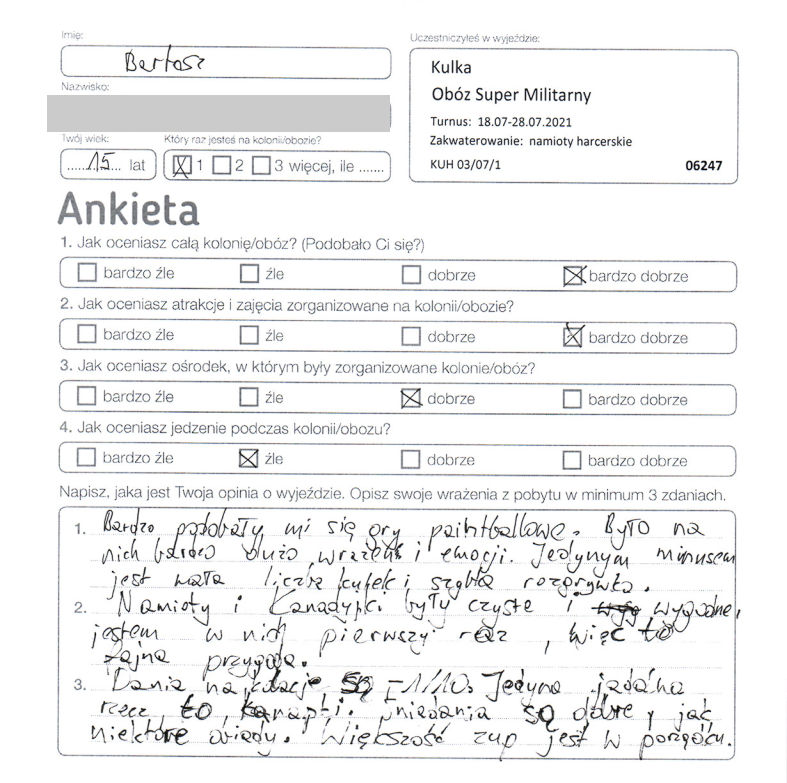 Imię:
Bartosz
Nazwisko:
Twój wiek:
Który raz jesteś na kolonii/obozie?
.....15... lat
1 2 3 więcej, ile .......
Uczestniczyłeś w wyjeździe:
Kulka
Obóz Super Militarny
Turnus: 18.07-28.07.2021
Zakwaterowanie: namioty harcerskie
KUH 03/07/1 06247
Ankieta
1. Jak oceniasz całą kolonię/obóz? (Podobało Ci się?)
bardzo źle źle dobrze bardzo dobrze
2. Jak oceniasz atrakcje i zajęcia zorganizowane na kolonii/obozie?
bardzo źle źle dobrze bardzo dobrze
3. Jak oceniasz ośrodek, w którym były zorganizowane kolonie/obóz?
bardzo źle źle dobrze bardzo dobrze
4. Jak oceniasz jedzenie podczas kolonii/obozu?
bardzo źle źle dobrze bardzo dobrze
Napisz, jaka jest Twoja opinia o wyjeździe. Opisz swoje wrażenia z pobytu w minimum 3 zdaniach.
1. Bardzo podobały mi się gry paintballowe. Było na
nich bardzo dużo wrażeń i emocji. Jedynym minusem
jest mała liczba kulek i szybka rozgrywka.
2. Namioty i Kanadyjki były czyste i wygodne,
jestem w nich pierwszy raz, więc to
fajna przygoda.
3. Dania na kolację są -1/10. Jedyna jadalna
rzecz to kanapki. śniadania są dobre, jak
niektóre obiady. Większość zup jest w porządku.